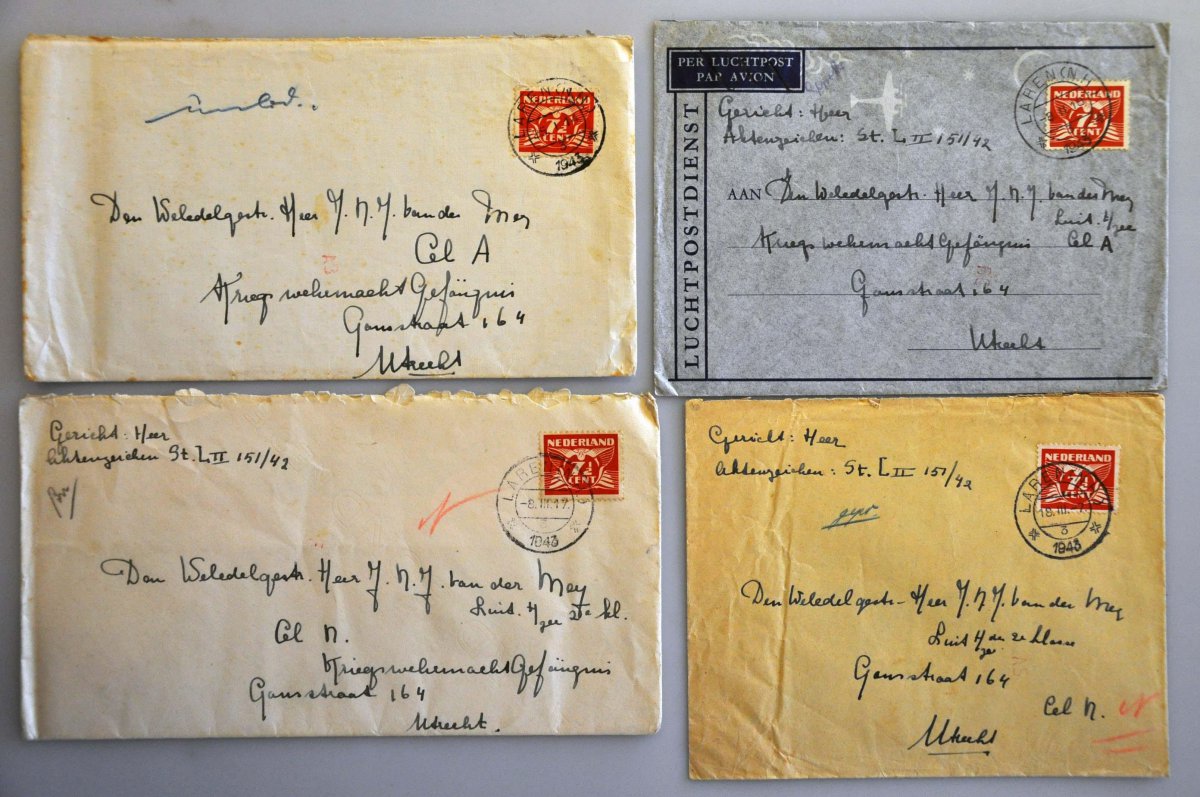 NEDERLAND
7½
CENT
LAREN (N.H
1943
Den Weledelgestr. Heer J. N. J. van der Mey
Cel A
Kriegswehrmacht Gefängnis
Gansstraat 164
Utrecht
PER LUCHTPOST
PAR AVION
LUCHTPOSTDIENST
NEDERLAND
7½
CENT
LAREN (N.H
1943
Gericht: Heer
Aktenzeichen: St. L II 151/42
AAN Den Weledelgestr. Heer J. N. J. van der Mey
Luit. t/zee
Kriegswehemacht Gefängnis Cel A
Gansstraat 164
Utrecht
Gericht: Heer
Aktenzeichen St. L II 151/42
NEDERLAND
7½
CENT
LAREN
-8.III.17
3
1943
N
Den Weledelgestr. Heer J. N. J. van der Mey
Luit. t/zee 2e kl.
Cel N.
Kriegswehemacht Gefängnis
Gansstraat 164
Utrecht.
Gericht: Heer
Aktenzeichen: St. L II 151/42
gepr.
NEDERLAND
7½
LAREN
18.III.-7
3
1943
Den Weledelgestr. Heer J. N. J. van der Mey
Luit t/zee der 2e klasse
Gansstraat 164
Cel N. N
Utrecht